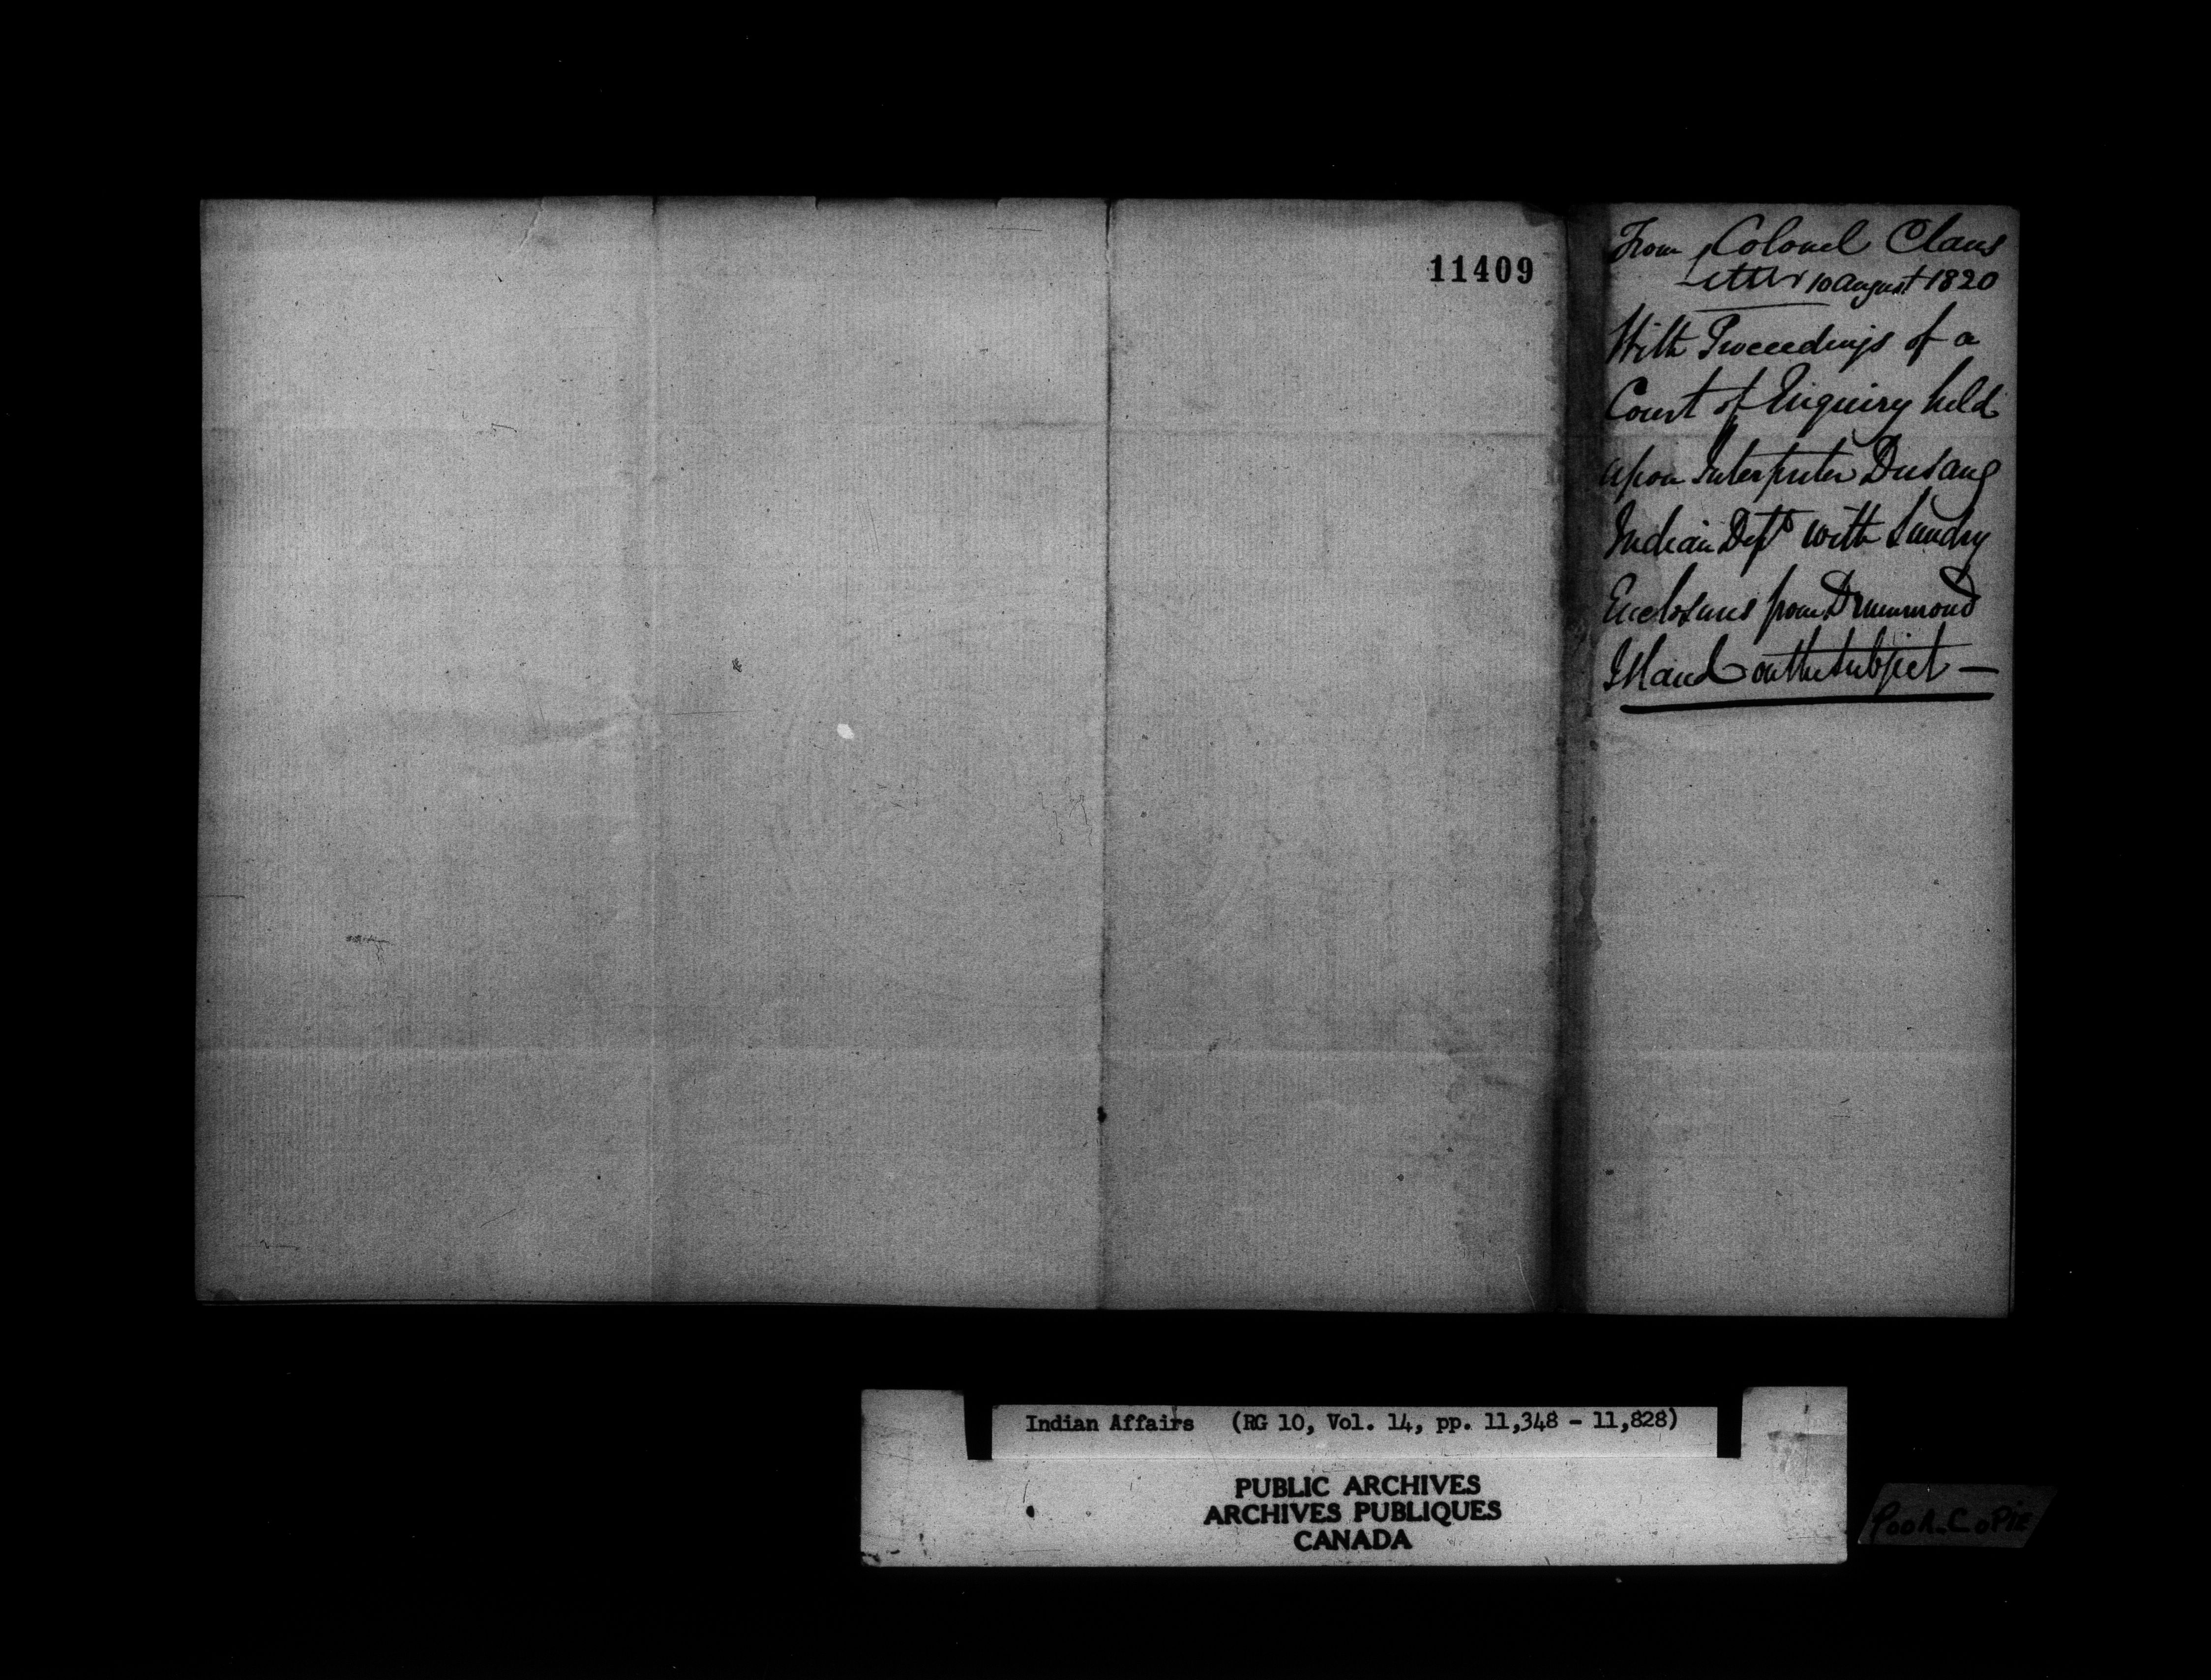 11409
From Colonel Claus
Letter 10 August 1820
With Proceedings of a
Court of Enquiry held
upon Interpreter Dusang
Indian Dept with Sundry
Enclosures from Drummond
Island on the subject —
Indian Affairs (RG 10, Vol. 14, pp. 11,348 - 11,828)
PUBLIC ARCHIVES
ARCHIVES PUBLIQUES
CANADA
Poor Copie